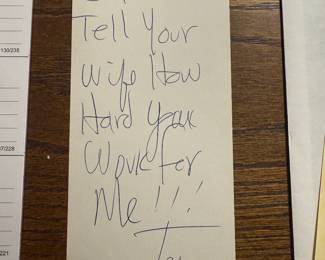 130/235
Tell Your
Wife How
Hard You
Work For
Me!!!
7/228
221